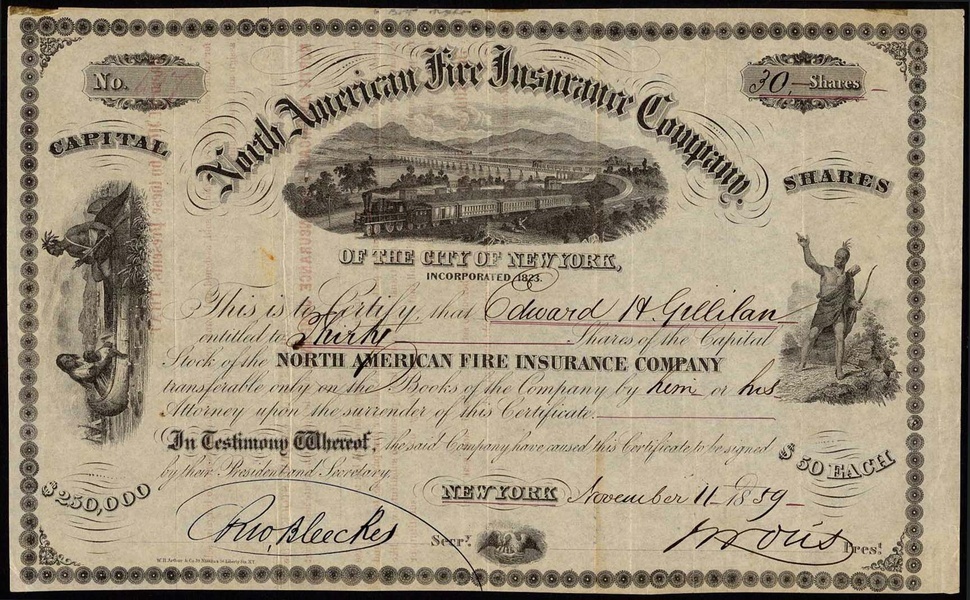 No.
30, Shares
North American Fire Insurance Company,
CAPITAL
SHARES
OF THE CITY OF NEW YORK,
INCORPORATED 1823.
This is to Certify, that Edward H. Gillilan
entitled to Thirty Shares of the Capital
Stock of the NORTH AMERICAN FIRE INSURANCE COMPANY
transferable only on the Books of the Company by him or his
Attorney upon the surrender of this Certificate.
In Testimony Whereof, the said Company have caused this Certificate to be signed
by their President and Secretary.
$250,000
$50 EACH
NEW YORK November 11 1859
Bleecker Secry.
Prest.